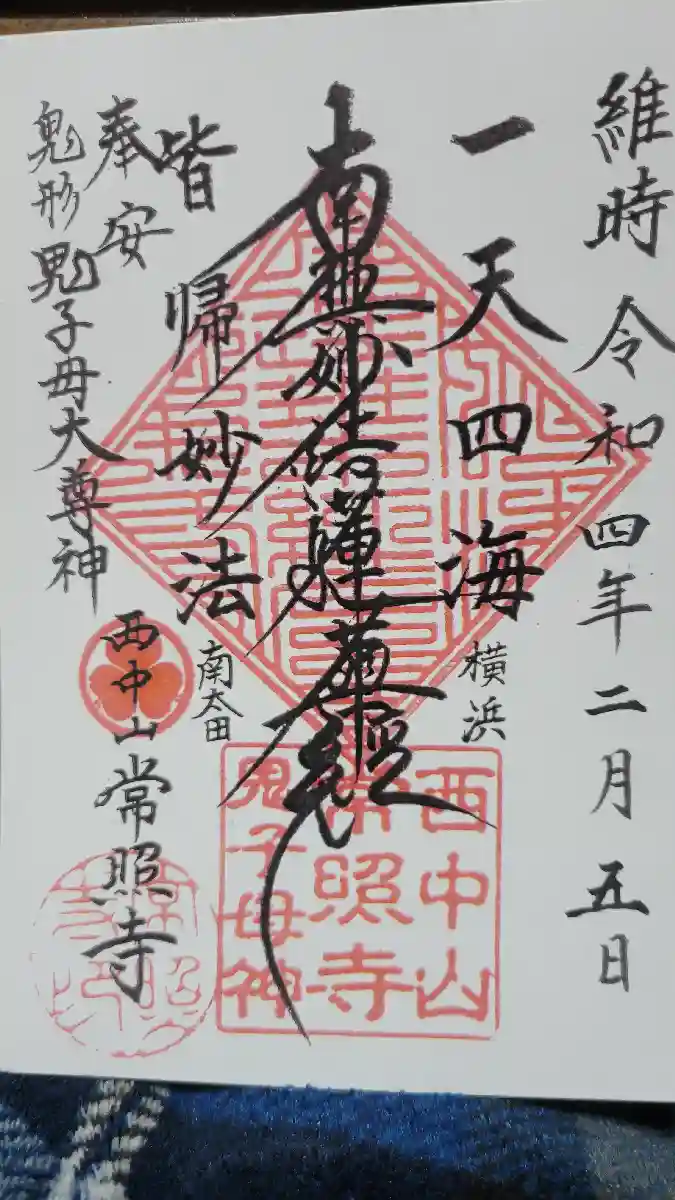 維時 令和四年二月五日
一天四海
横浜
南無妙法蓮華経
皆帰妙法
南太田
奉安
鬼形鬼子母大尊神
西中山常照寺
西中山
常照寺
鬼子母神